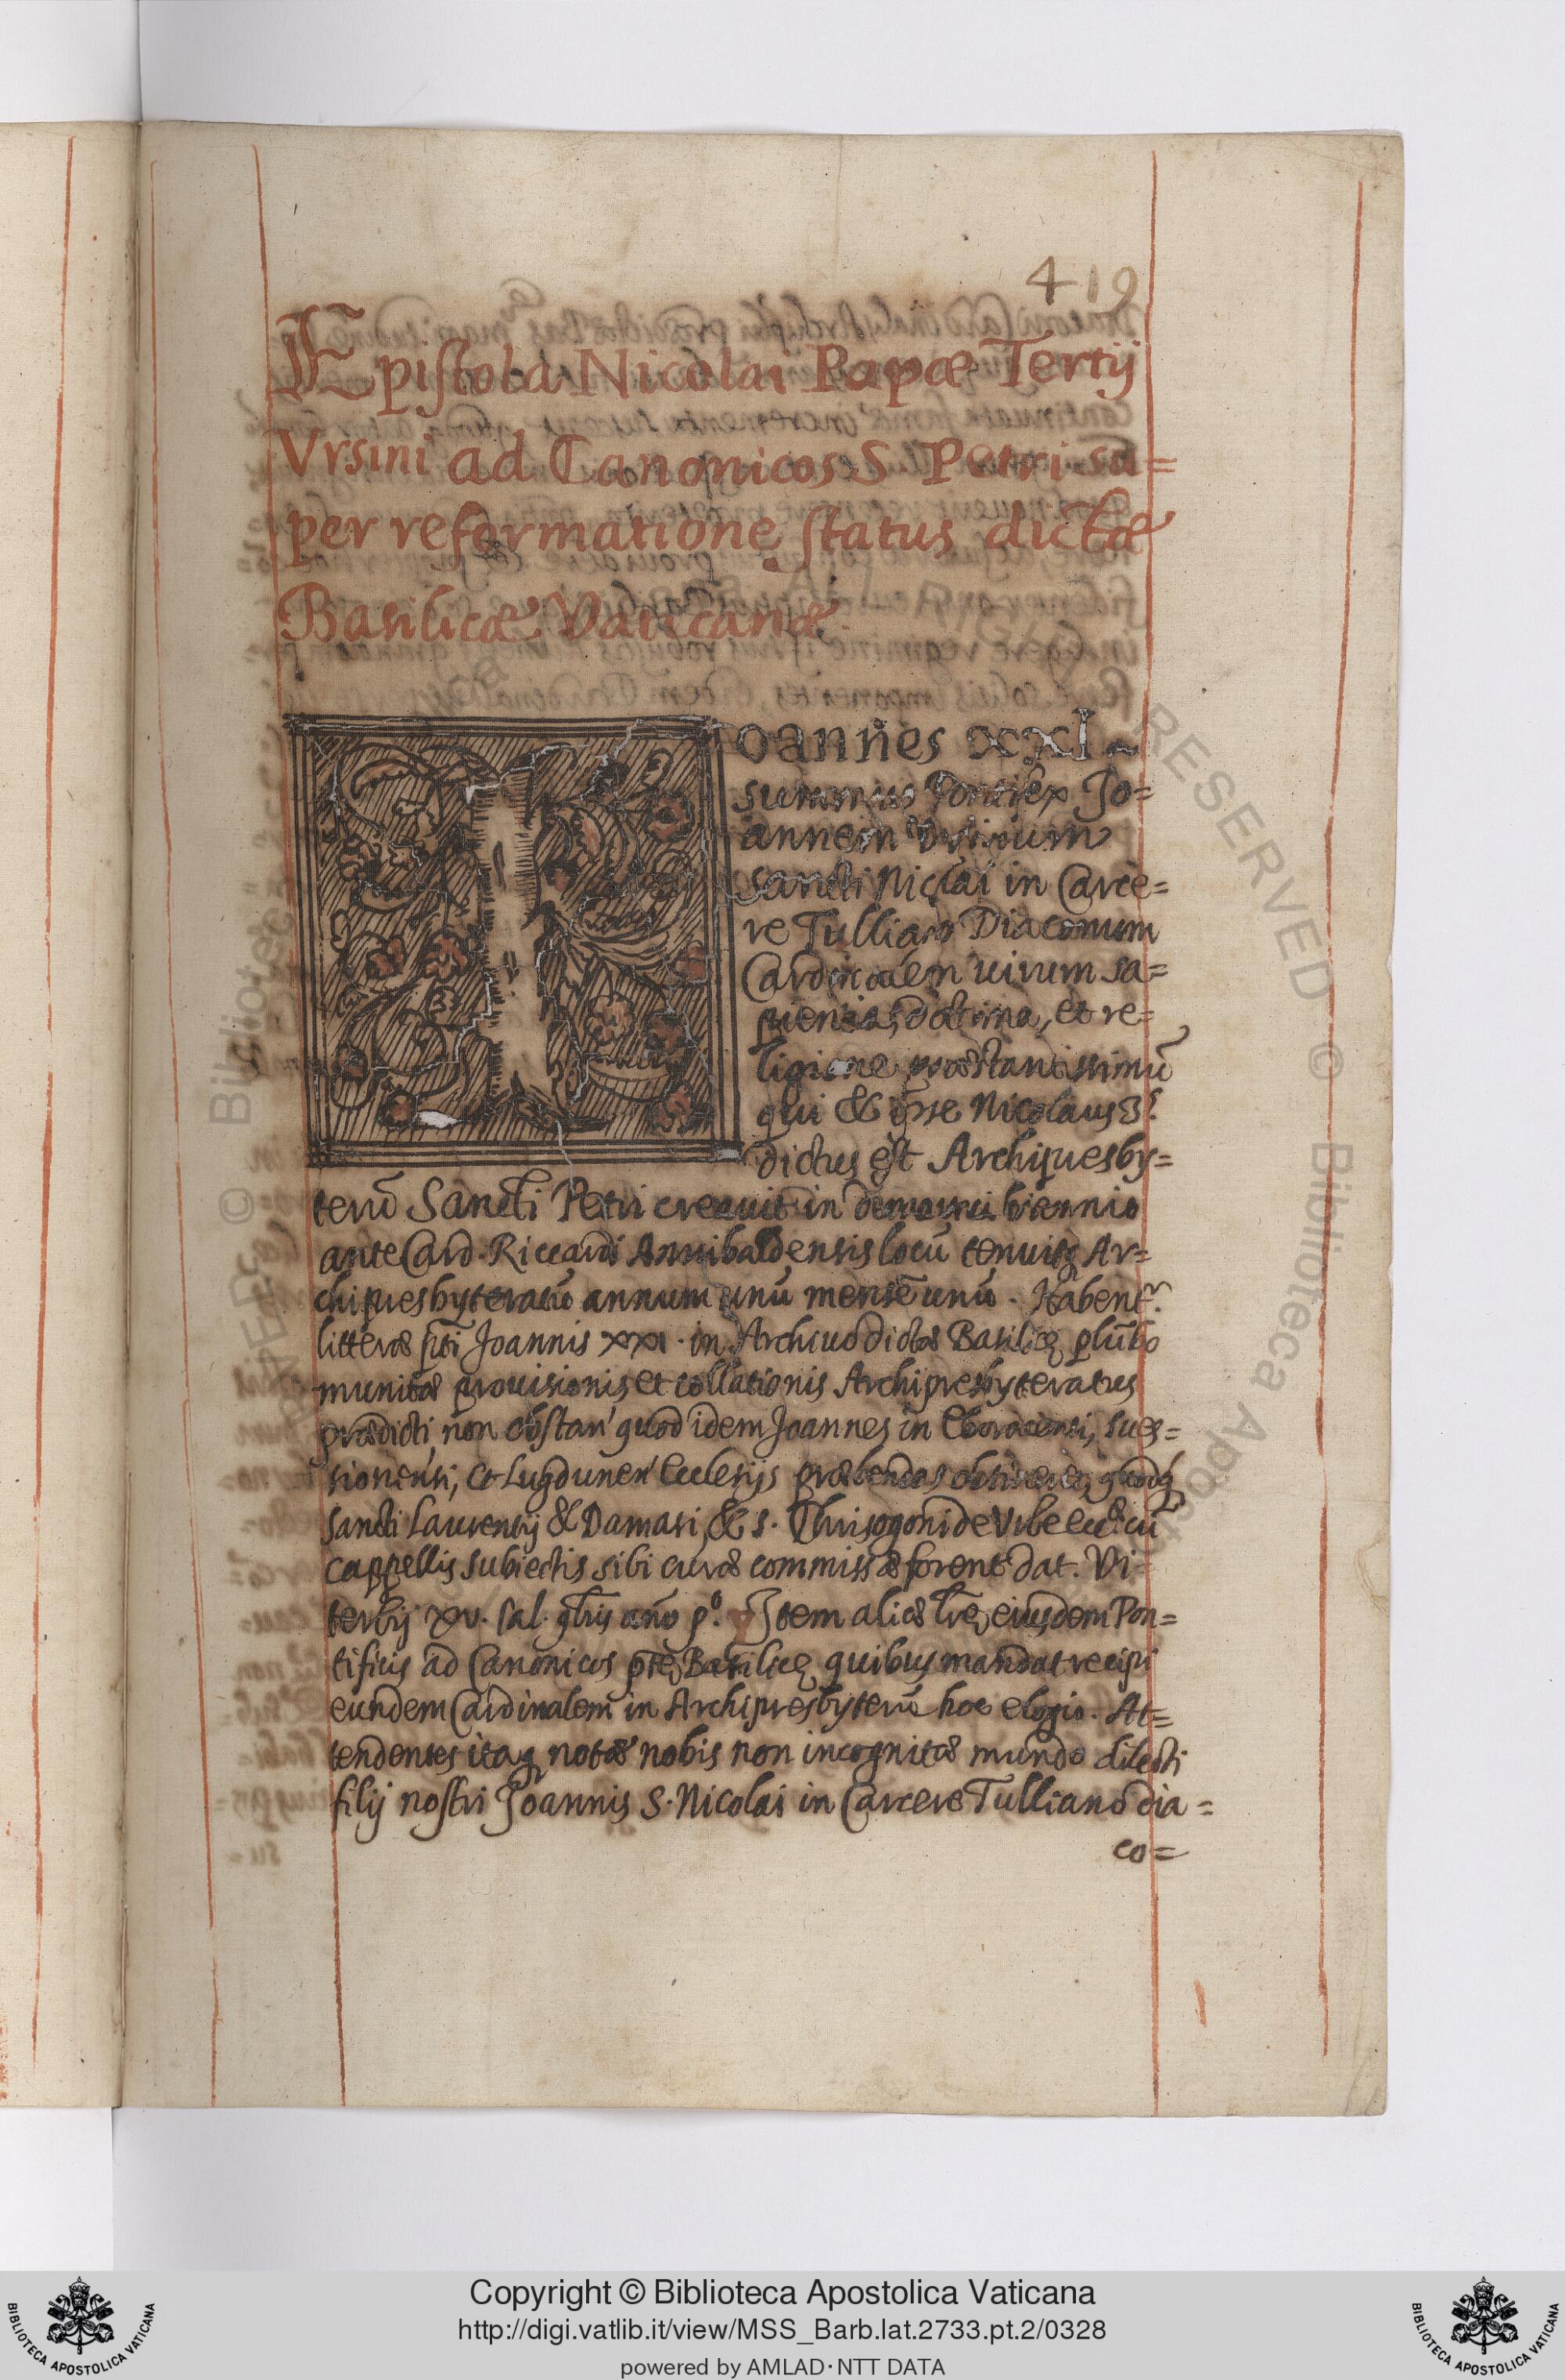 419
Epistola Nicolai Papæ Tertij
Vrsini ad Canonicos S Petri su=
per reformatione status dictæ
Basilicæ Vaticanæ.
Ioannes xxI
summus Pontifex Jo=
annem Vrsinum
Sancti Niclai in Carce=
re Tulliano Diaconum
Cardinalem uirum sa=
pientia, doctrina, et re=
ligione præstantissimũ
qui & ipse Nicolaus 3.
dictus est Archipresby=
terũ Sancti Petri creauit in demortui biennio
ante Card. Riccardi Annibaldensis locũ tenuitq Ar=
chipresbyteratũ annum unũ mensẽ unũ. Habent.
litteræ Joannis XXI. in Archiuo dictæ Basilicę plũbo
munitæ prouisionis et collationis Archipresbyteratus
prædicti, non obstan' quod idem Joannes in Eboracensi, Sues=
sionensi, et Lugdunen' Ecclesijs præbendas obtineret, quodq
Sancti Laurentij & Damasi, & S. Chrisogoni de Vrbe cũ
cappellis subiectis sibi curæ commissæ forent dat. Vi=
terbij XV. año p.º Item aliæ lrę eiusdem Pon=
tificis ad Canonicos Basilicę quibus mandat recipi
eundem Cardinalem in Archipresbyterũ hoc elogio. At=
tendentes itaq notas nobis non incognitas mundo dilecti
filij nostri Joannis S. Nicolai in Carcere Tulliano dia=
co=
Copyright © Biblioteca Apostolica Vaticana
http://digi.vatlib.it/view/MSS_Barb.lat.2733.pt.2/0328
powered by AMLAD·NTT DATA
BIBLIOTECA APOSTOLICA VATICANA
BIBLIOTECA APOSTOLICA VATICANA